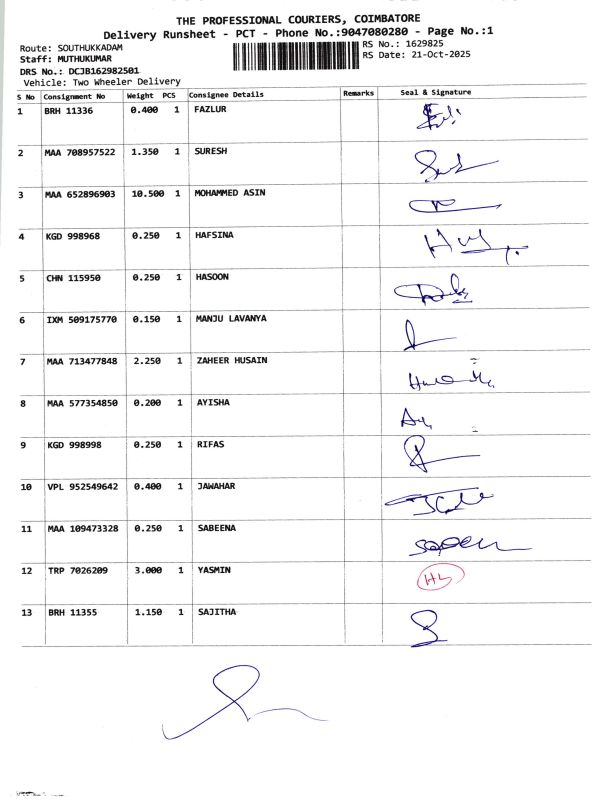 THE PROFESSIONAL COURIERS, COIMBATORE
Delivery Runsheet - PCT - Phone No.:9047080280 - Page No.:1
Route: SOUTHUKKADAM
RS No.: 1629825
Staff: MUTHUKUMAR
RS Date: 21-Oct-2025
DRS No.: DCJB162982501
Vehicle: Two Wheeler Delivery
S No Consignment No Weight PCS Consignee Details Remarks Seal & Signature
1 BRH 11336 0.400 1 FAZLUR
2 MAA 708957522 1.350 1 SURESH
3 MAA 652896903 10.500 1 MOHAMMED ASIN
4 KGD 998968 0.250 1 HAFSINA
5 CHN 115950 0.250 1 HASOON
6 IXM 509175770 0.150 1 MANJU LAVANYA
7 MAA 713477848 2.250 1 ZAHEER HUSAIN
8 MAA 577354850 0.200 1 AYISHA
9 KGD 998998 0.250 1 RIFAS
10 VPL 952549642 0.400 1 JAWAHAR
11 MAA 109473328 0.250 1 SABEENA
12 TRP 7026209 3.000 1 YASMIN
13 BRH 11355 1.150 1 SAJITHA